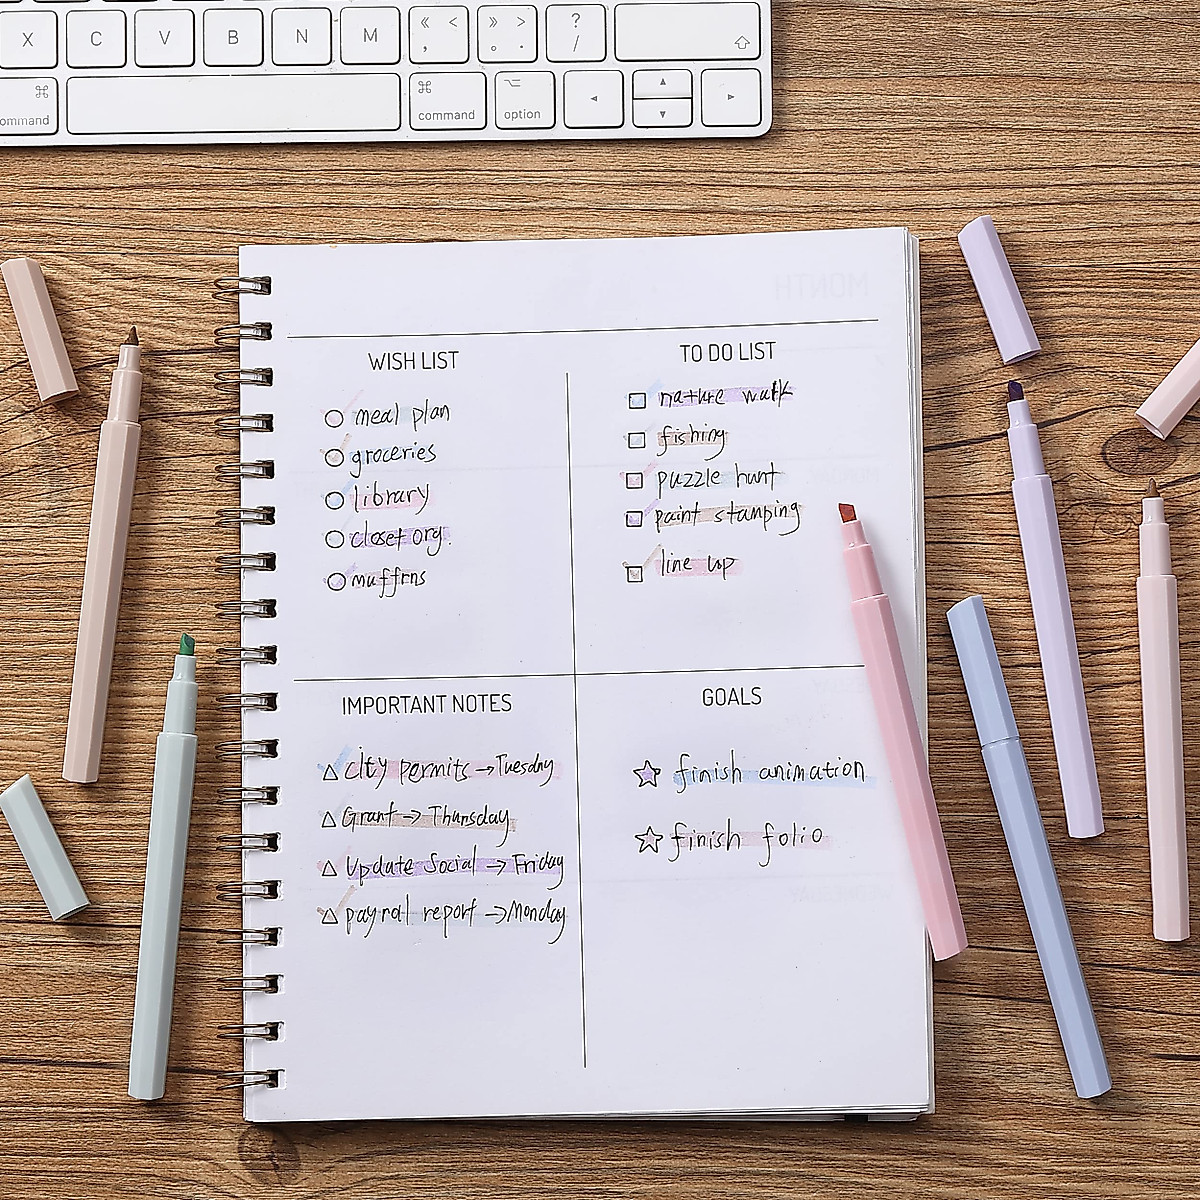 X C V B N M « < , » > 。 . ? /
⌘ ommand ⌘ command ⌥ option ◄ ▲ ▼ ►
MONTH
WISH LIST
meal plan
groceries
library
closet org.
muffins
TO DO LIST
nature walk
fishing
puzzle hunt
paint stamping
line up
IMPORTANT NOTES
city permits → Tuesday
Grant → Thursday
Update Social → Friday
payrol report → Monday
GOALS
finish animation
finish folio